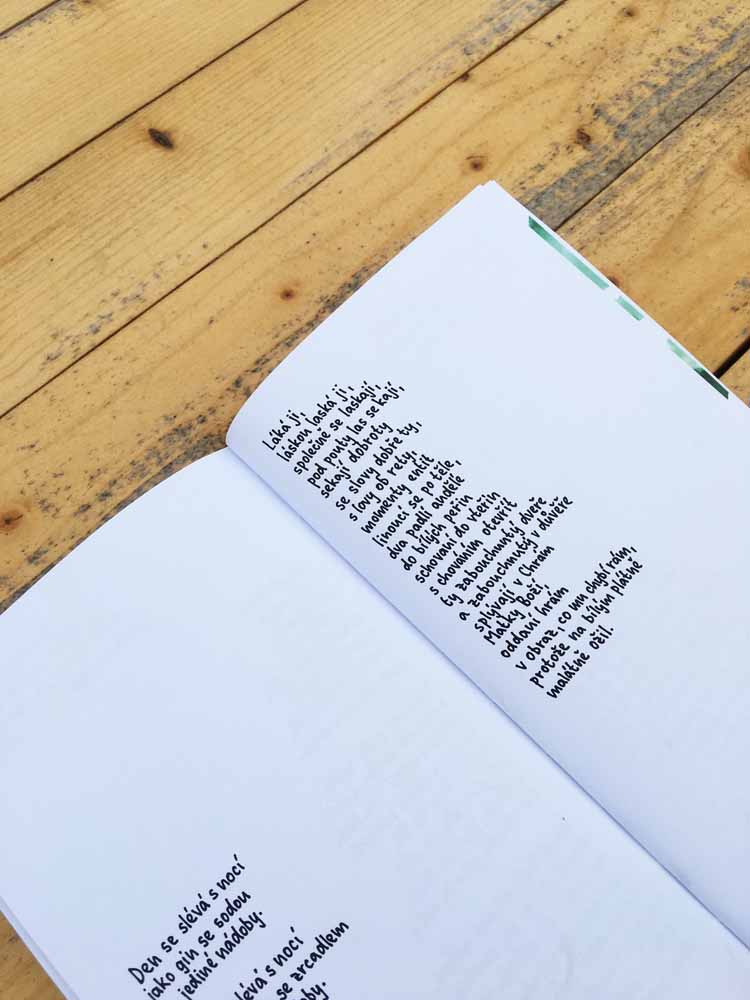 Den se slévá s nocí
jako gin se sodou
jediné nádoby.
lévá s nocí
se zrcadlem
Láká ji,
láskou laská ji,
společně se laskají,
pod pouty las se kají,
sekají dobroty
se slovy dobře ty,
s lovy ob rety,
momenty entit
linoucí se po těle,
dva padlí andělé
do bílých peřin
schovaní do vteřin
s chováním otevřít
ty zabouchnutý dveře
a zabouchnutý v důvěře
splývají v Chrám
Matky Boží,
oddaní hrám
v obraz, co mu chybí rám,
protože na bílým plátně
malátně ožil.